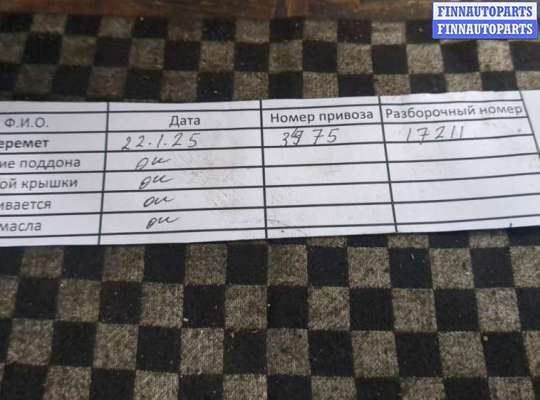 FINNAUTOPARTS
FINNAUTOPARTS
Ф.И.О. Дата Номер привоза Разборочный номер
еремет 22.1.25 3975 17211
ие поддона ок
ой крышки ок
ивается ок
масла ок